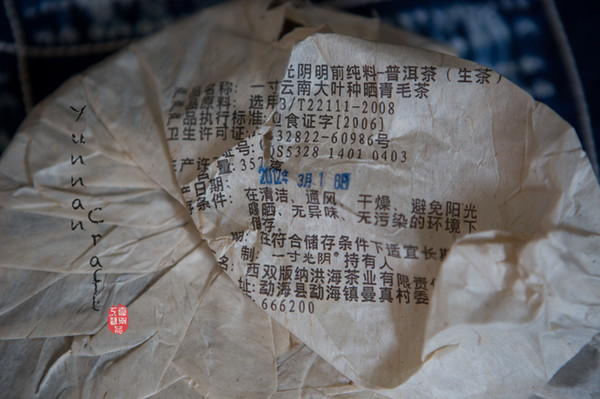 品名称: 一寸光阴明前纯料-普洱茶（生茶）
产品原料: 选用云南大叶种晒青毛茶
产品执行标准 B/T22111-2008
卫生许可证 食证字[2006]
532822-60986号
证号: QS5328 1401 0403
量: 357
2012年3月18日
条件: 在清洁、通风、干燥、避免阳光
曝晒、无异味、无污染的环境下
储存。
期: 在符合储存条件下适宜长期
制: 一寸光阴®持有人
名: 西双版纳洪海茶业有限责
址: 勐海县勐海镇曼真村委
: 666200
Yunnan
Craft